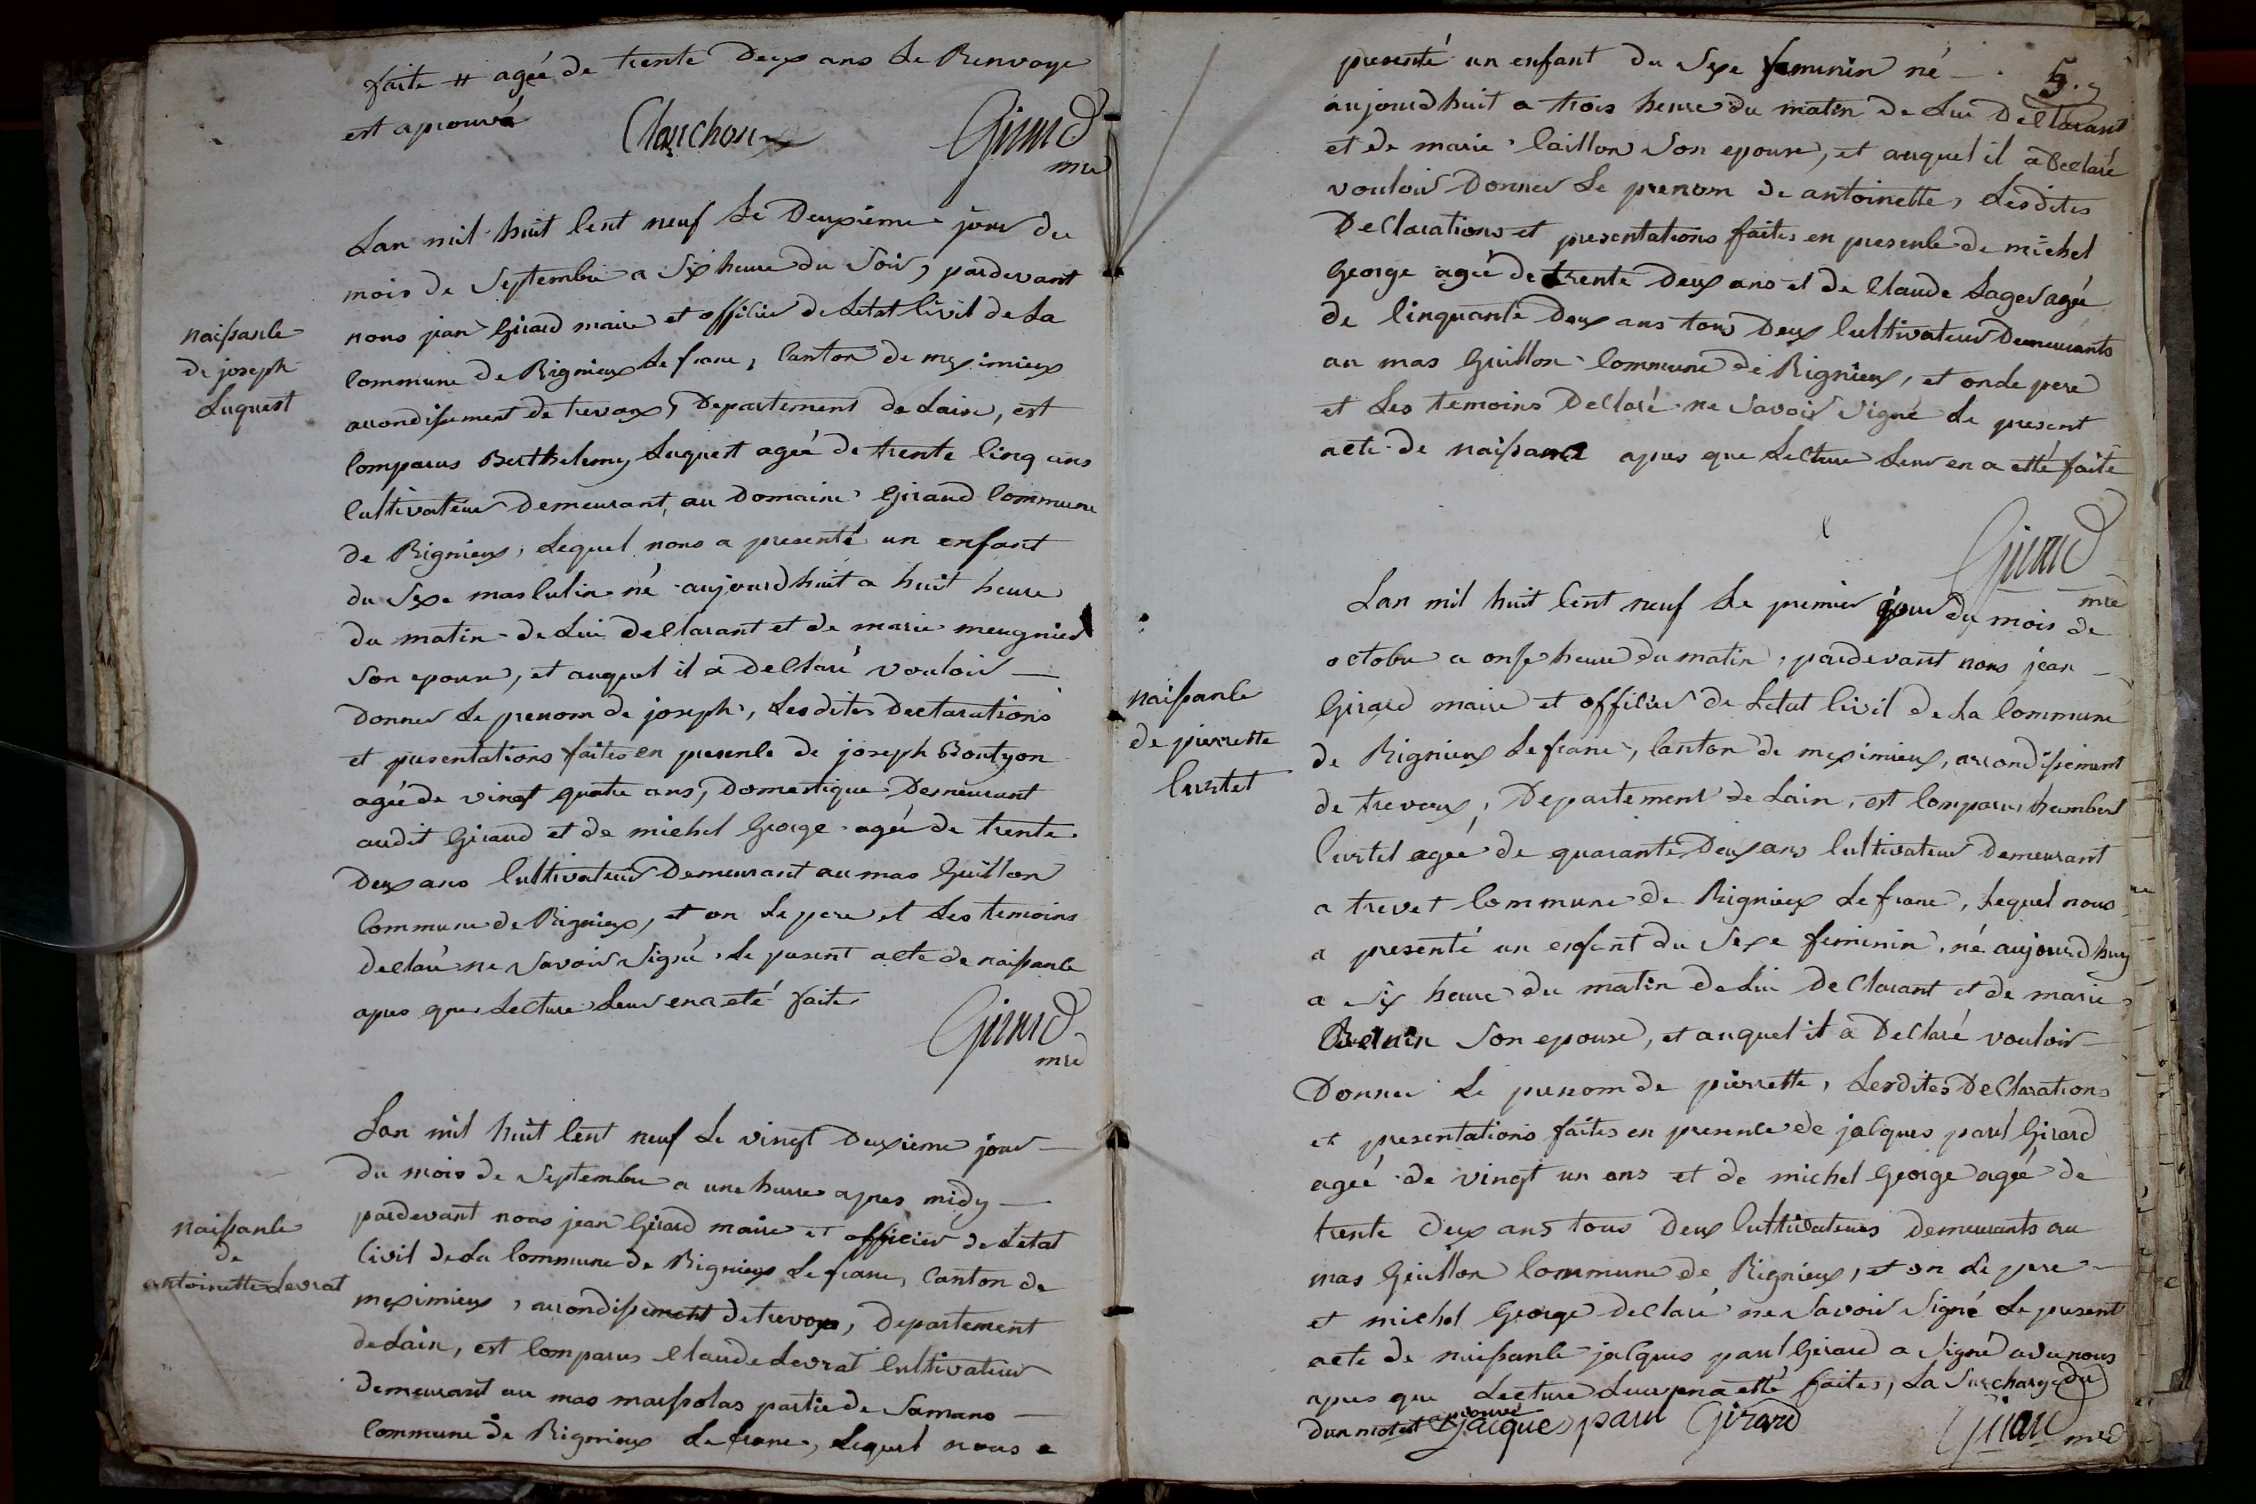 faite # agée de trente Deux ans Le Renvoye
est aprouvé
Clauchoux
Girard
mre
Lan mil huit Cent neuf Le Deuxième jour du
mois de Septembre a Six heure du Soir, pardevant
nous jean Girard maire et officier de Letat Civil de La
Commune de Rignieux Le franc, Canton de meximieux
arrondissement de trevoux, Departement de Lain, est
Comparus Berthelemy Luquest agée de trente Cinq ans
Cultivateur Demeurant au Domaine Giraud Commune
de Rignieux, Lequel nous a presenté un enfant
du Sexe masculin né aujourdhuit a huit heure
du matin de Lui Declarant et de marie meugnier
Son epouse, et auquel il a Declaré vouloir
Donner Le prenom de joseph, Lesdites Declarations
et presentations faites en presence de joseph Boutyon
agée de vingt quatre ans, Domestique Demeurant
audit Giraud et de michel George agée de trente
Deux ans Cultivateur Demeurant au mas Guillon
Commune de Rignieux, et on Le pere et Les temoins
declaré ne Savoir Signé Le present acte de naissance
apres que Lecture Leur en a eté faite
Girard
mre
naissance
de joseph
Luquest
Lan mil huit Cent neuf Le vingt Deuxieme jour
du mois de Septembre a une heure apres midy
pardevant nous jean Girard maire et officier de Letat
Civil de La Commune de Rignieux Le franc, Canton de
meximieux, arrondissement de trevoux, Departement
de Lain, est Comparus Claude Levrat Cultivateur
demeurant au mas massolas partie de Samans
Commune de Rignieux Le franc, Lequel nous a
naissance
de
antoinette Levrat
5.
presenté un enfant du Sexe feminin né
aujourdhuit a trois heure du matin de Lui Declarant
et de marie Caillon Son epouse, et auquel il a Declaré
vouloir Donner Le prenom de antoinette, Lesdites
Declarations et presentations faites en presence de michel
George agée de trente Deux ans et de Claude Lager agée
de Cinquante Deux ans tous Deux Cultivateur Demeurants
au mas Guillon Commune de Rignieux, et on de pere
et Les temoins Declaré ne Savoir Signé Le present
acte de naissance apres que Lecture Leur en a etté faite
Girard
mre
Lan mil huit Cent neuf Le premier jour du mois de
octobre a onse heure du matin, pardevant nous jean
Girard maire et officier de Letat Civil de La Commune
de Rignieux Le franc, Canton de meximieux, arrondissement
de trevoux, Departement de Lain, est Comparus humbert
Curtet agée de quarante Deux ans Cultivateur demeurant
a trevet Commune de Rignieux Le franc, Lequel nous
a presenté un enfant du Sexe feminin, né aujourdhuy
a Six heure du matin de Lui Declarant et de marie
Son epouse, et auquel il a Declaré vouloir
Donner Le prenom de pierrette, Lesdites Declarations
et presentations faites en presence de jacques paul Girard
agée de vingt un ans et de michel George agée de
trente deux ans tous Deux Cultivateurs demeurants au
mas Guillon Commune de Rignieux, et on Le pere
et michel George declaré ne Savoir Signé Le present
acte de naissance jacques paul Girard a Signé avec nous
apres que Lecture Leur en a etté faite, La Surcharge
dun mot est aprouvé
jacques paul Girard
Girard mre
naissance
de pierrette
Curtet